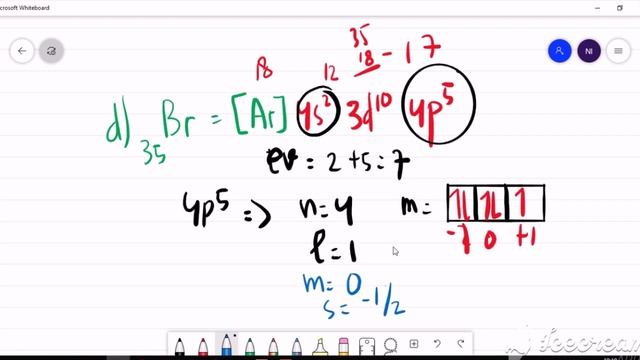 Microsoft Whiteboard
NI
35
18 - 17
18 12
d) 35Br = [Ar] 4s² 3d¹⁰ 4p⁵
ev = 2 + 5 = 7
4p⁵ => n = 4 m = 1L 1L 1
l = 1 -1 0 +1
m = 0
s = -1/2